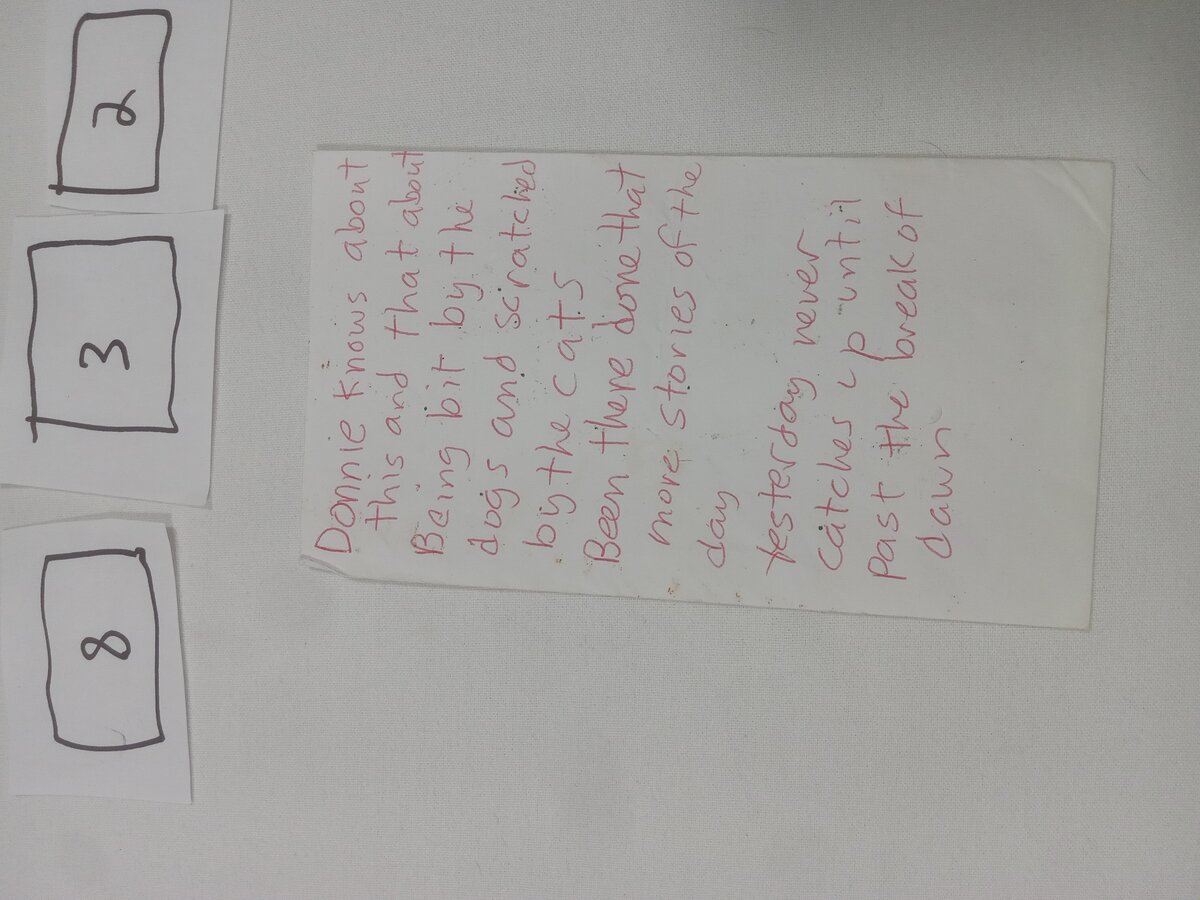 8
3
2
Donnie knows about
this and that about
Being bit by the
dogs and scratched
by the cats
Been there done that
more stories of the
day
Yesterday never
catches up until
past the break of
dawn